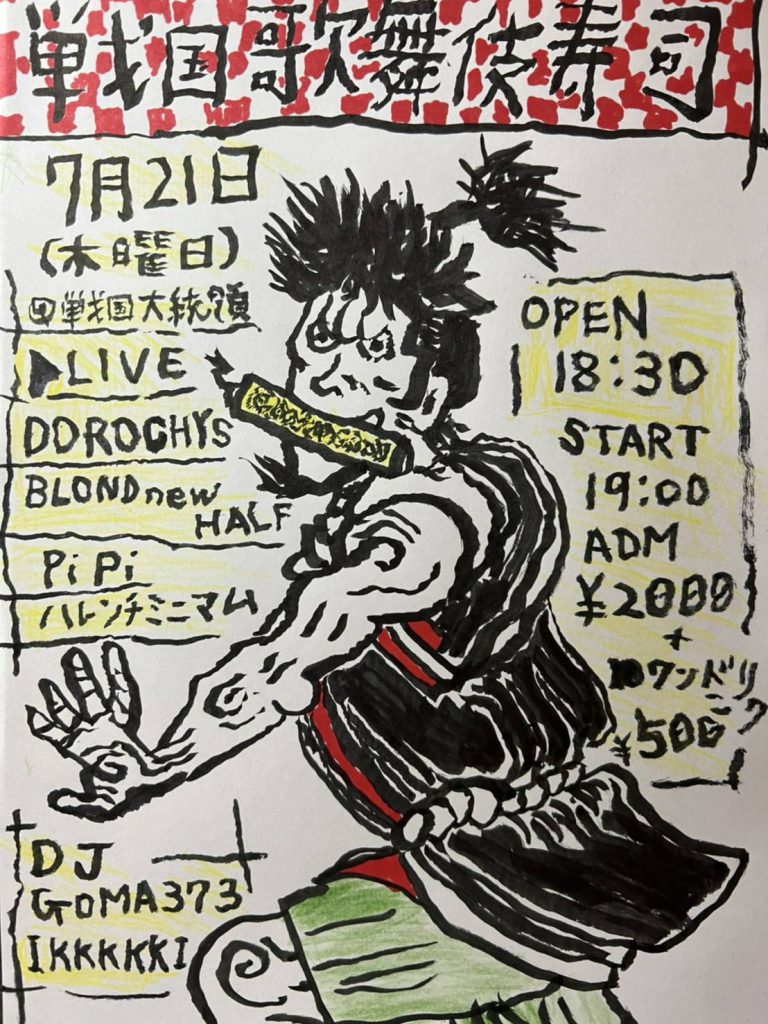 戦国歌舞伎寿司
7月21日
(木曜日)
@戦国大統領
▶LIVE
DOROGHYS
BLONDnew
HALF
PiPi
ハレンチミニマム
OPEN
18:30
START
19:00
ADM
¥2000
+
ワンドリ
ンク
¥500
DJ
GOMA373
IKKKKKI